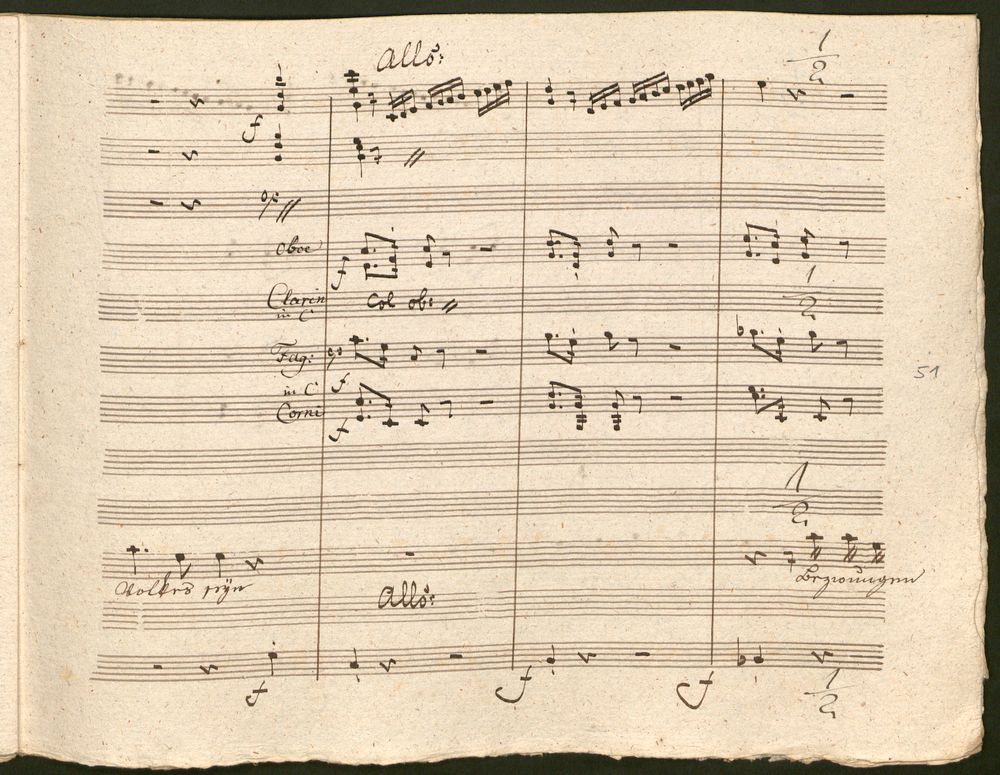 Allo:
1/2
f
Oboe
f
Clarin
in C
Col ob: //
1/2
Fag:
f
51
in C
Corni
f
1/2
Volkes seyn
Bezwungen
Allo:
f
f
f
1/2